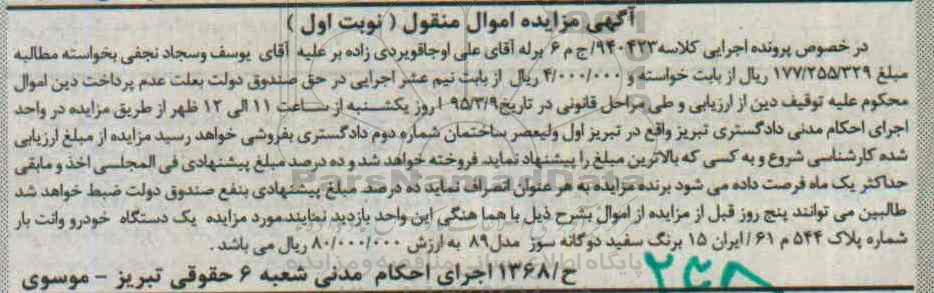 آگهی مزایده اموال منقول ( نوبت اول )
در خصوص پرونده اجرایی کلاسه ۹۴۰۴۲۳/ج م ۶ برله آقای علی اوجاقویردی زاده بر علیه آقای یوسف وسجاد نجفی بخواسته مطالبه
مبلغ ۱۷۷/۲۵۵/۳۲۹ ریال از بابت خواسته و ۴/۰۰۰/۰۰۰ ریال از بابت نیم عشر اجرایی در حق صندوق دولت بعلت عدم پرداخت دین اموال
محکوم علیه توقیف دین از ارزیابی و طی مراحل قانونی در تاریخ ۹۵/۳/۹ روز یکشنبه از ساعت ۱۱ الی ۱۲ ظهر از طریق مزایده در واحد
اجرای احکام مدنی دادگستری تبریز واقع در تبریز اول ولیعصر ساختمان شماره دوم دادگستری بفروشی خواهد رسید مزایده از مبلغ ارزیابی
شده کارشناسی شروع و به کسی که بالاترین مبلغ را پیشنهاد نماید فروخته خواهد شد و ده درصد مبلغ پیشنهادی فی المجلسی اخذ و مابقی
حداکثر یک ماه فرصت داده می شود برنده مزایده به هر عنوان انصراف نماید ده درصد مبلغ پیشنهادی بنفع صندوق دولت ضبط خواهد شد
طالبین می توانند پنج روز قبل از مزایده از اموال بشرح ذیل با هما هنگی این واحد بازدید نمایند مورد مزایده یک دستگاه خودرو وانت بار
شماره پلاک ۵۴۴ م ۶۱ / ایران ۱۵ برنگ سفید دوگانه سوز مدل ۸۹ به ارزش ۸۰/۰۰۰/۰۰۰ ریال می باشد .
ح/۱۳۶۸ اجرای احکام مدنی شعبه ۶ حقوقی تبریز - موسوی
ParsNamadData
پایگاه اطلاع رسانی مناقصه و مزایده